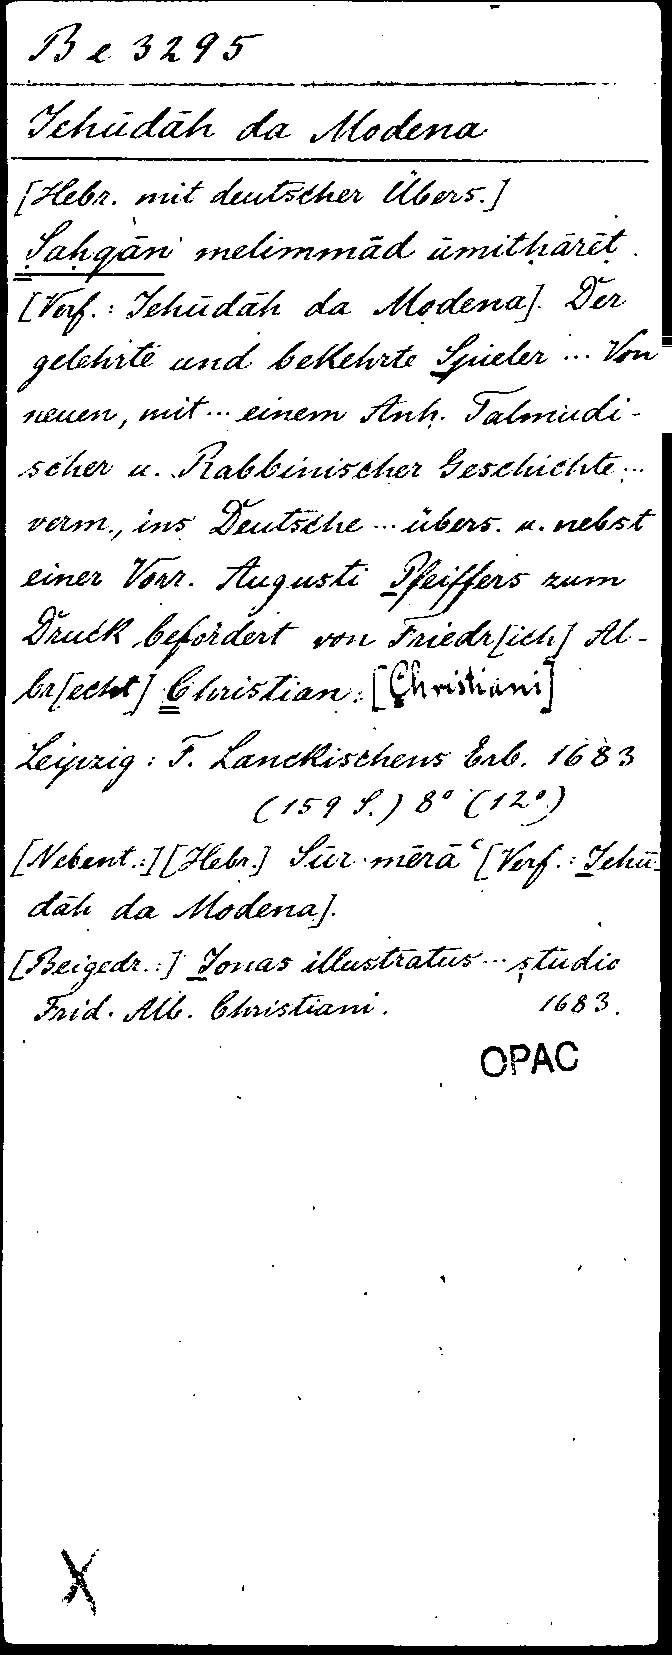 Be 3295
Jehūdāh da Modena
[Hebr. mit deutscher Übers.]
Ṣaḥqān melimmād ūmitḥārēṭ.
[Verf.: Jehūdāh da Modena]. Der
gelehrte und bekehrte Spieler ... Von
neuen, mit ... einem Anh. Talmudi-
scher u. Rabbinischer Geschichte ...
verm., ins Deutsche ... übers. u. nebst
einer Vorr. Augusti Pfeiffers zum
Druck befördert von Friedr[ich] Al-
br[echt] Christian. [Christiani]
Leipzig: F. Lanckischens Erb. 1683
(159 S.) 8° (12°)
[Nebent.:] [Hebr.] Sūr mērāʿ [Verf.: Jehū-
dāh da Modena].
[Beigedr.:] Jonas illustratus ... studio
Frid. Alb. Christiani. 1683.
OPAC
X